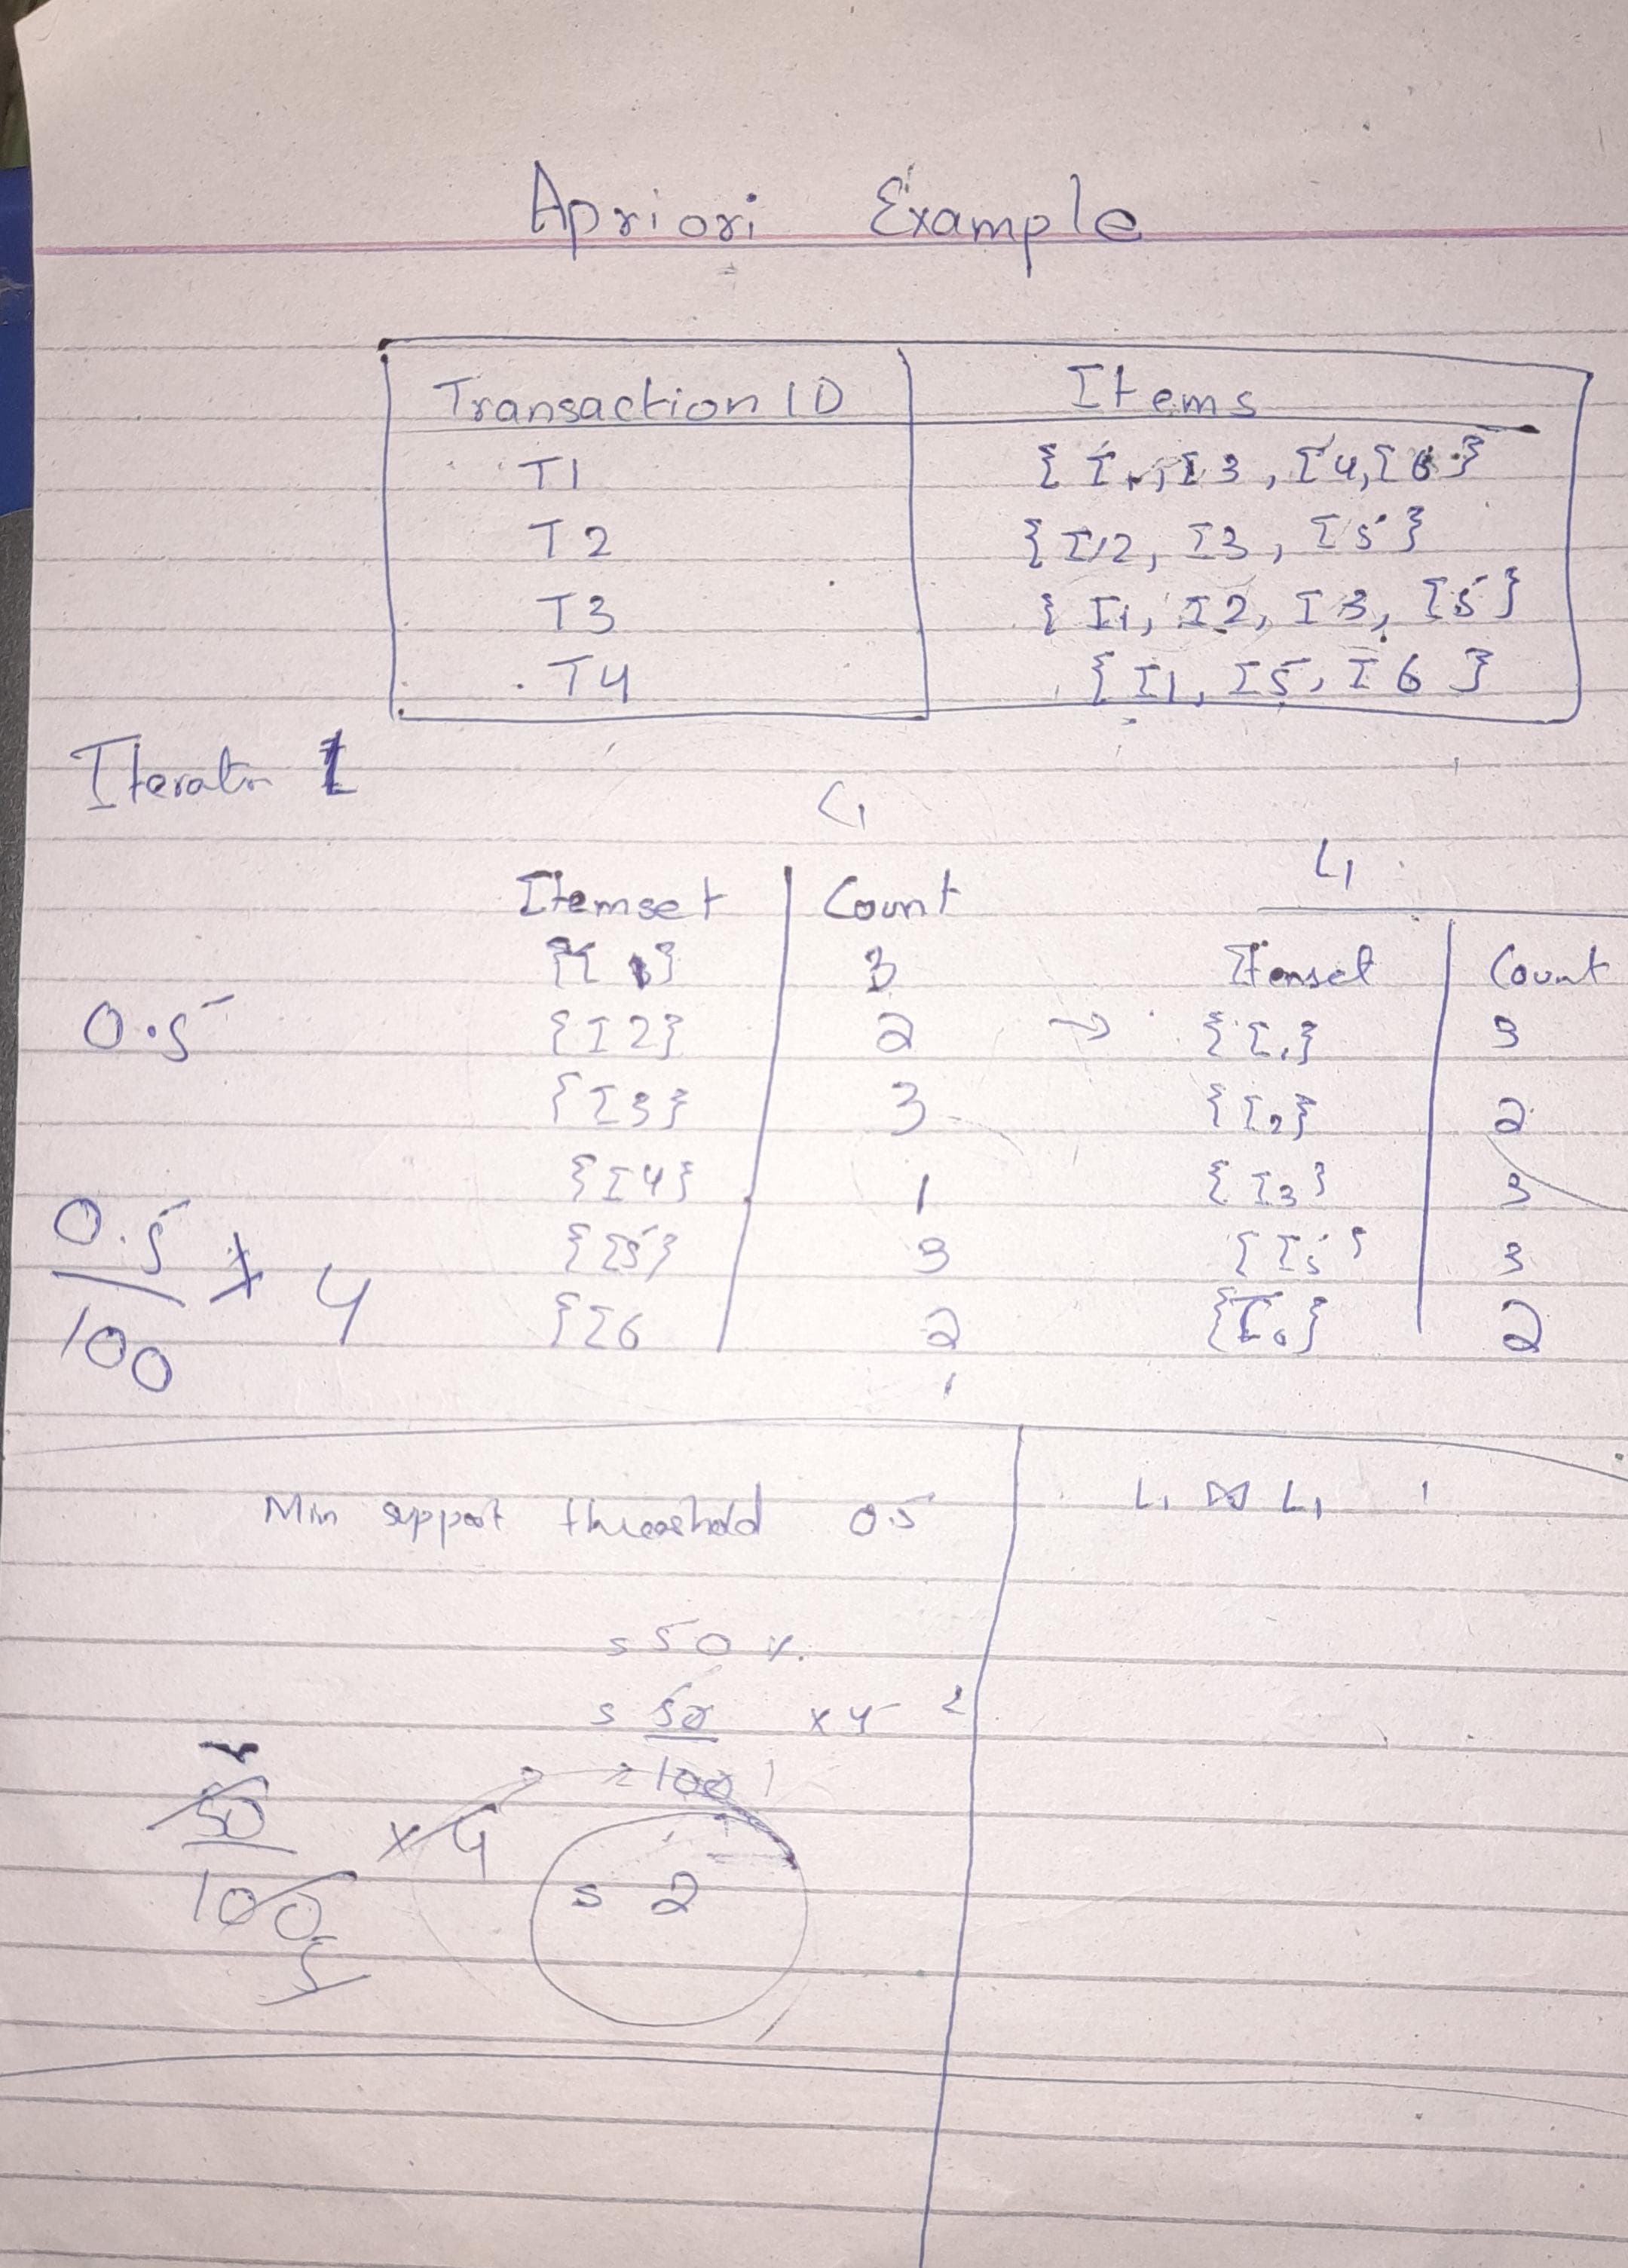 Apriori Example
Transaction ID Items
T1 { I1, I3, I4, I6 }
T2 { I2, I3, I5 }
T3 { I1, I2, I3, I5 }
T4 { I1, I5, I6 }
Iteratn 1
C1
L1
Itemset Count
{I1} 3
{I2} 2
{I3} 3
{I4} 1
{I5} 3
{I6 2
→
Itemset Count
{I1} 3
{I2} 2
{I3} 3
{I5} 3
{I6} 2
0.5
0.5 × 4
100
Min support threshold 0.5
L1 ⋈ L1
= 50 %
= 50 × 4
100
50 × 4
100
= 2